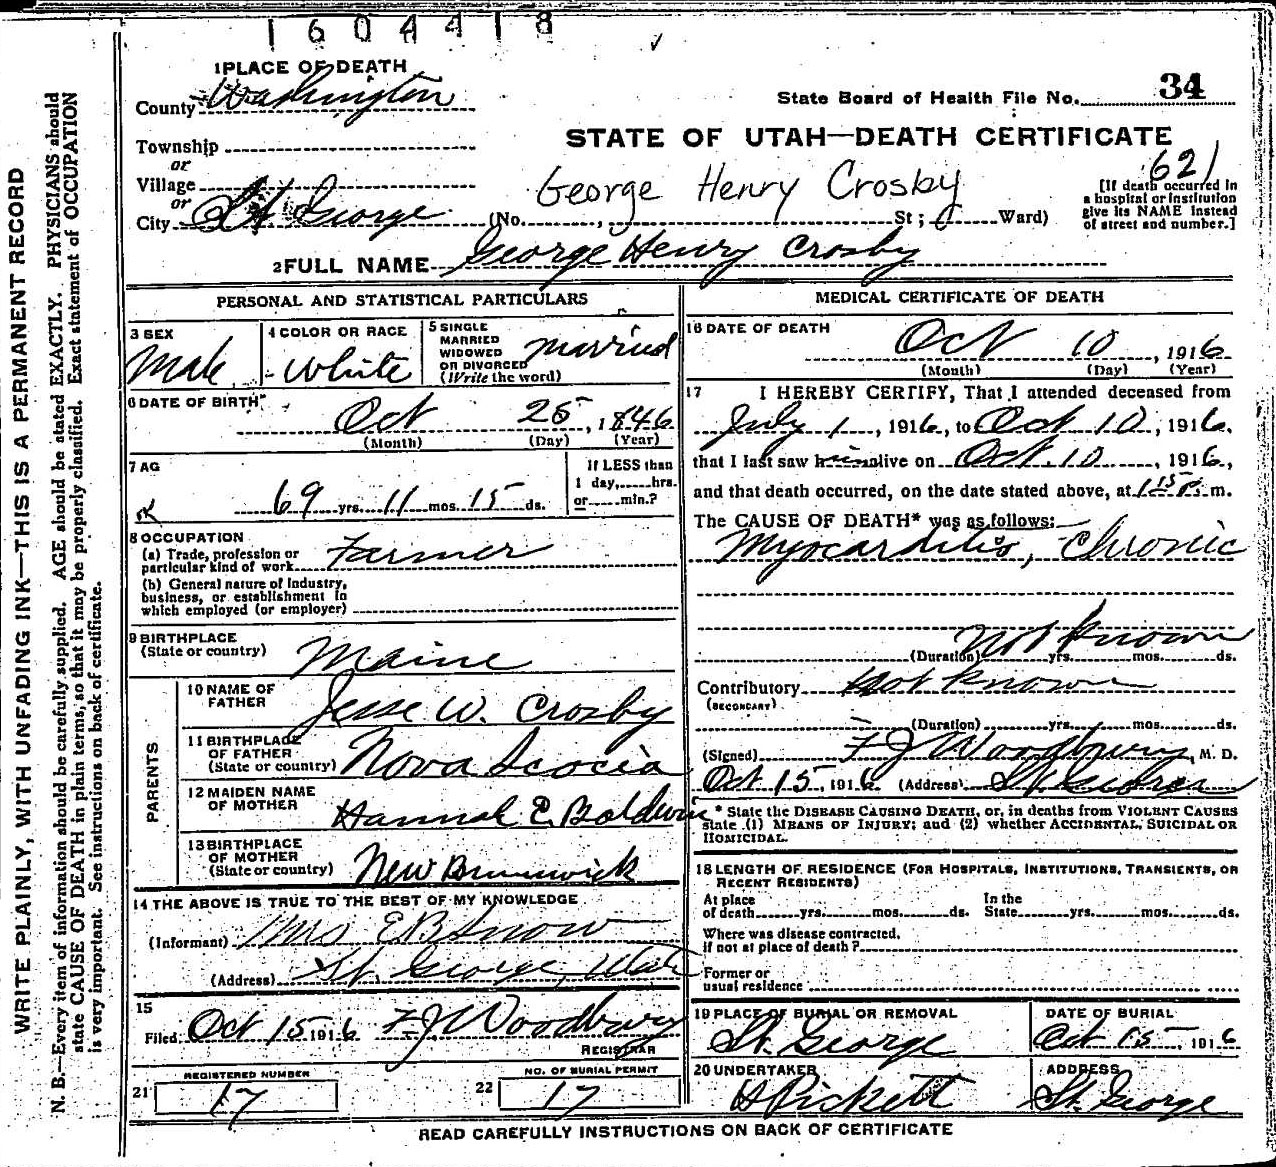 1604418
1 PLACE OF DEATH
County Washington
State Board of Health File No. 34
Township
or
Village
or
City St George
STATE OF UTAH—DEATH CERTIFICATE
621
George Henry Crosby
(No. , St ; Ward)
[If death occurred in
a hospital or institution
give its NAME instead
of street and number.]
2 FULL NAME George Henry Crosby
PERSONAL AND STATISTICAL PARTICULARS
3 SEX
Male
4 COLOR OR RACE
White
5 SINGLE
MARRIED
WIDOWED
OR DIVORCED
(Write the word)
Married
6 DATE OF BIRTH
Oct 25, 1846
(Month) (Day) (Year)
7 AG
69 yrs. 11 mos. 15 ds.
If LESS than
1 day, hrs.
or min.?
8 OCCUPATION
(a) Trade, profession or
particular kind of work Farmer
(b) General nature of industry,
business, or establishment in
which employed (or employer)
9 BIRTHPLACE
(State or country) Maine
PARENTS
10 NAME OF
FATHER Jesse W. Crosby
11 BIRTHPLACE
OF FATHER
(State or country) Nova Scocia
12 MAIDEN NAME
OF MOTHER Hannah E. Baldwin
13 BIRTHPLACE
OF MOTHER
(State or country) New Brunswick
14 THE ABOVE IS TRUE TO THE BEST OF MY KNOWLEDGE
(Informant) Mrs E B Snow
(Address) St. George, Utah
15
Filed Oct 15 1916 F J Woodbury
REGISTRAR
REGISTERED NUMBER
21 17
NO. OF BURIAL PERMIT
22 17
MEDICAL CERTIFICATE OF DEATH
16 DATE OF DEATH
Oct 10, 1916
(Month) (Day) (Year)
17 I HEREBY CERTIFY, That I attended deceased from
July 1, 1916, to Oct 10, 1916,
that I last saw him alive on Oct. 10, 1916,
and that death occurred, on the date stated above, at 1 15 P. m.
The CAUSE OF DEATH* was as follows:
Myocarditis, Chronic
Not Known
(Duration) yrs. mos. ds.
Contributory Not Known
(SECONDARY)
(Duration) yrs. mos. ds.
(Signed) F J Woodbury, M. D.
Oct 15, 1916 (Address) St. George
* State the DISEASE CAUSING DEATH, or, in deaths from VIOLENT CAUSES
state (1) MEANS OF INJURY; and (2) whether ACCIDENTAL, SUICIDAL OR
HOMICIDAL.
18 LENGTH OF RESIDENCE (FOR HOSPITALS, INSTITUTIONS, TRANSIENTS, OR
RECENT RESIDENTS)
At place
of death yrs. mos. ds.
In the
State yrs. mos. ds.
Where was disease contracted,
if not at place of death?
Former or
usual residence
19 PLACE OF BURIAL OR REMOVAL
St. George
DATE OF BURIAL
Oct 15, 1916
20 UNDERTAKER
H Pickett
ADDRESS
St. George
READ CAREFULLY INSTRUCTIONS ON BACK OF CERTIFICATE
WRITE PLAINLY, WITH UNFADING INK—THIS IS A PERMANENT RECORD
N. B.—Every item of information should be carefully supplied. AGE should be stated EXACTLY. PHYSICIANS should
state CAUSE OF DEATH in plain terms, so that it may be properly classified. Exact statement of OCCUPATION
is very important. See instructions on back of certificate.